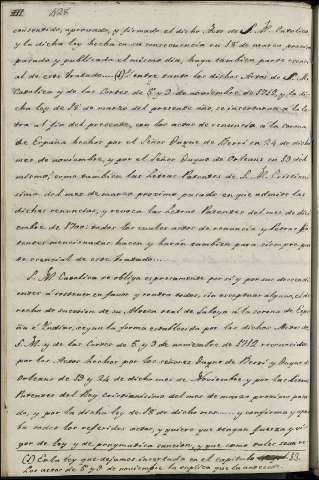 1828
consentido, aprovado, y firmado el dicho Acto de S. M. Catolica
y la dicha ley hecha en su consecuencia en 18 de marzo proximo
pasado y publicada el mismo dia, haga tambien parte esencial
al de este tratado.... (1) entre tanto los dichos Actos de S. M.
Catolica y de las Cortes de 5 y 9 de noviembre de 1712, y la di-
cha ley de 18 de marzo del presente año, se incorporan a la le-
tra al fin del presente, con los actos de renuncia a la corona
de España hechos por el Señor Duque de Berri en 24 de dicho
mes de noviembre, y por el Señor Duque de Orleans en 19 del
mismo; como tambien las Letras Patentes de S. M. Cristiani-
sima del mes de marzo proximo pasado en que admite las
dichas renuncias, y revoca las Letras Patentes del mes de dici-
embre de 1700; todos los cuales actos de renuncia y Letras Pa-
tentes mencionadas hacen y harán tambien para siempre par-
te esencial de este tratado....
S. M. Catolica se obliga expresamente por sí y por sus descendi-
entes a sostener en favor y contra todos, sin exceptuar alguno, el de-
recho de sucesion de su Alteza real de Saboya a la corona de Espa-
ña é Indias, segun la forma establecida por los dichos Actos de
S. M. y de las Cortes de 5 y 9 de noviembre de 1712 reconocido
por los Actos hechos por los señores Duque de Berri y Duque de
Orleans de 19 y 24 de dicho mes de Noviembre y por las Letras
Patentes del Rey cristianisimo del mes de marzo proximo pasa-
do, y por la dicha ley de 18 de dicho mes.... y confirma y aprue-
ba todos los referidos actos, y quiere que tengan fuerza y vi-
gor de ley y de pragmatica sancion, y que como tales sean re-
(1) Es la ley que dejamos insertada en el capitulo 33.
Los actos de 5 y 9 de noviembre la explica que la antecede.